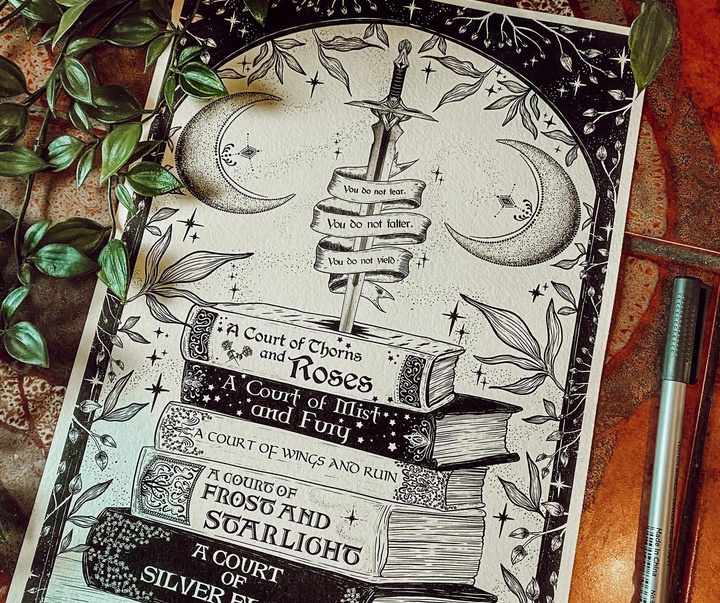 You do not fear.
You do not falter.
You do not yield.
A Court of Thorns
and Roses
A Court of Mist
and Fury
A COURT OF WINGS AND RUIN
A COURT OF
FROST AND
STARLIGHT
A COURT
OF
SILVER
Made in China